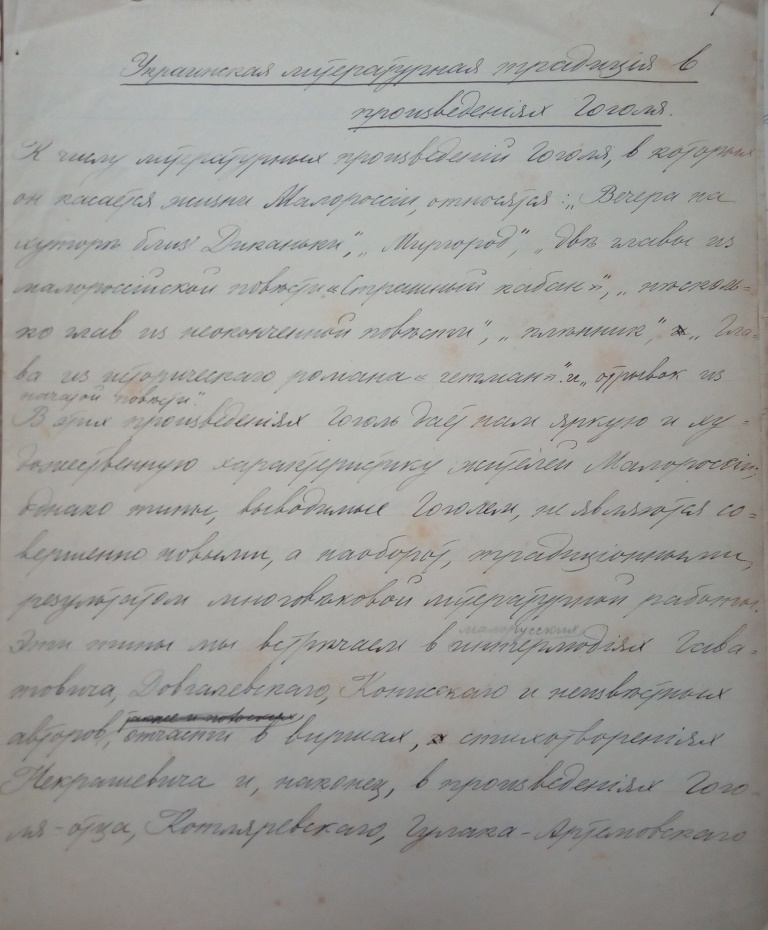 Украинская литературная традиція в
произведеніях Гоголя.
К числу литературных произведеній Гоголя, в которых
он касается жизни Малороссіи, относятся: „Вечера на
хуторѣ близ Диканьки", „Миргород", „двѣ главы из
малороссійской повѣсти «Страшный кабан»", „нѣсколь=
ко глав из неоконченной повѣсти", „плѣнник", „Гла=
ва из историческаго романа «гетман»" и „отрывок из
начатой повѣсти".
В этих произведеніях Гоголь дает нам яркую и ху=
дожественную характеристику жителей Малороссіи;
однако типы, выводимые Гоголем, не являются со=
вершенно новыми, а наоборот, традиціонными,
результатом многовѣковой литературной работы.
малорусских
Эти типы мы встрѣчаем в интермедіях Гава=
товича, Довгалевскаго, Конисскаго и неизвѣстных
авторов, отчасти в виршах, стихотвореніях
Некрашевича и, наконец, в произведеніях Гого=
ля-отца, Котляревскаго, Гулака-Артемовскаго